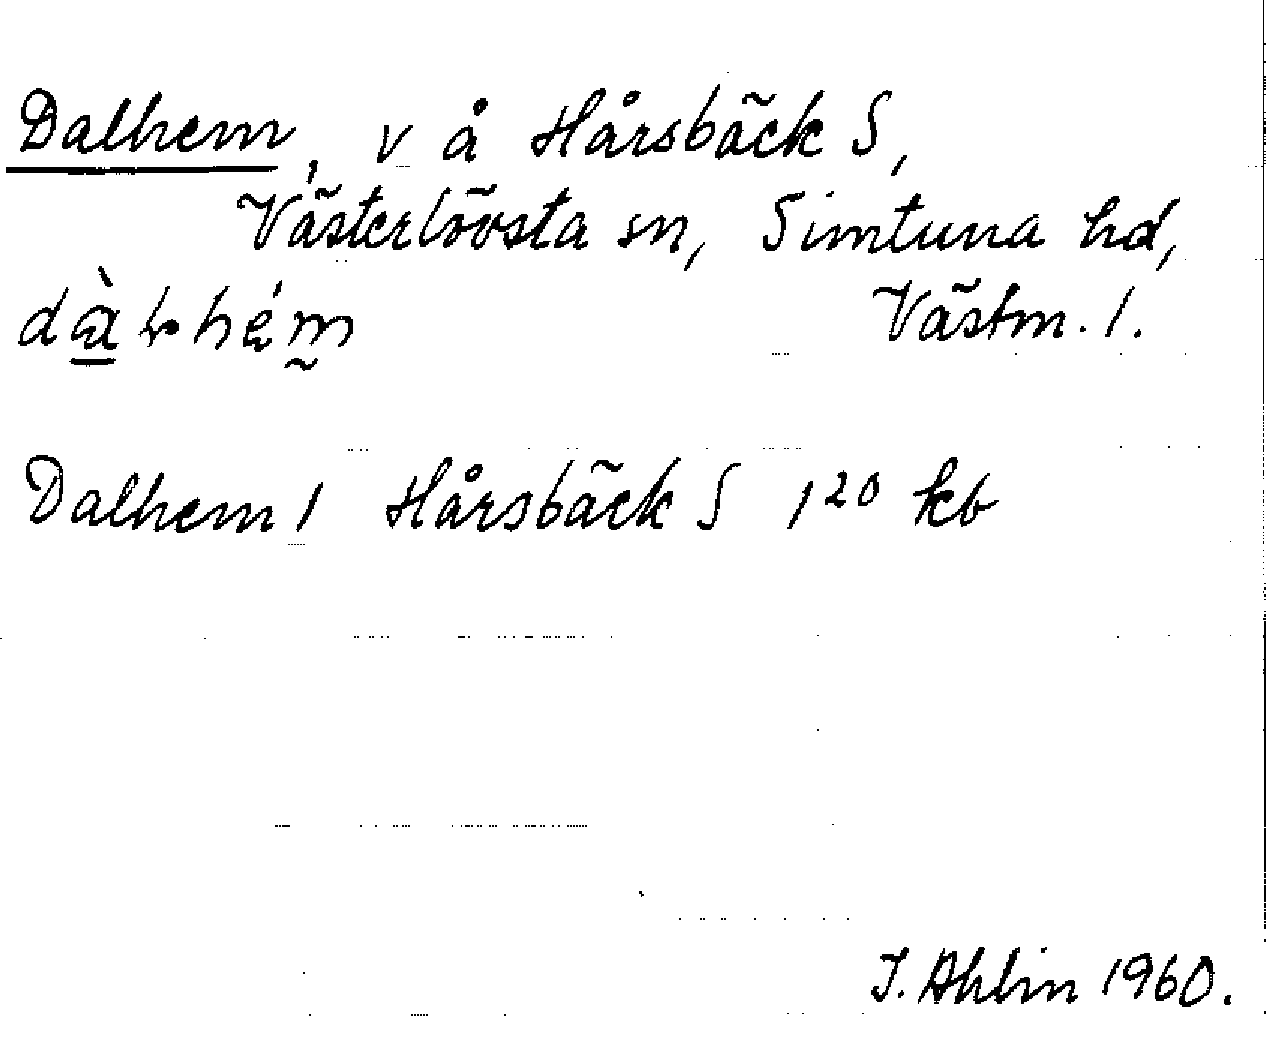 Dalhem, v å Hårsbäck S,
Västerlövsta sn, Simtuna hd,
Västm. l.
Dalhem 1 Hårsbäck S 1²⁰ kb
I. Ahlin 1960.